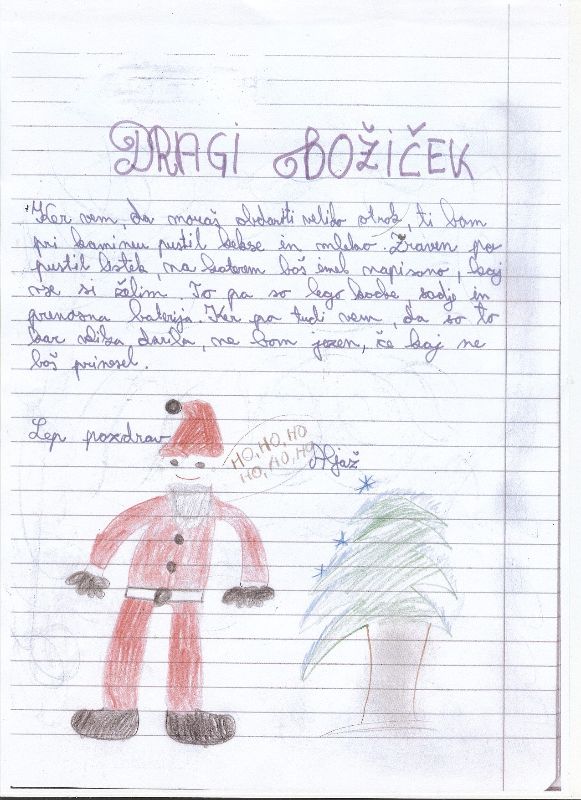 DRAGI BOŽIČEK
Ker vem, da moraš obdariti veliko otrok, ti bom
pri kaminu pustil kekse in mleko. Zraven pa
pustil listek, na katerem boš imel napisano, kaj
vse si želim. To pa so lego kocke sadje in
prenosna baterija. Ker pa tudi vem, da so to
kar velika darila, ne bom jezen, če kaj ne
boš prinesel.
Lep pozdrav
HO, HO, HO
HO, HO, HO
Aljaž